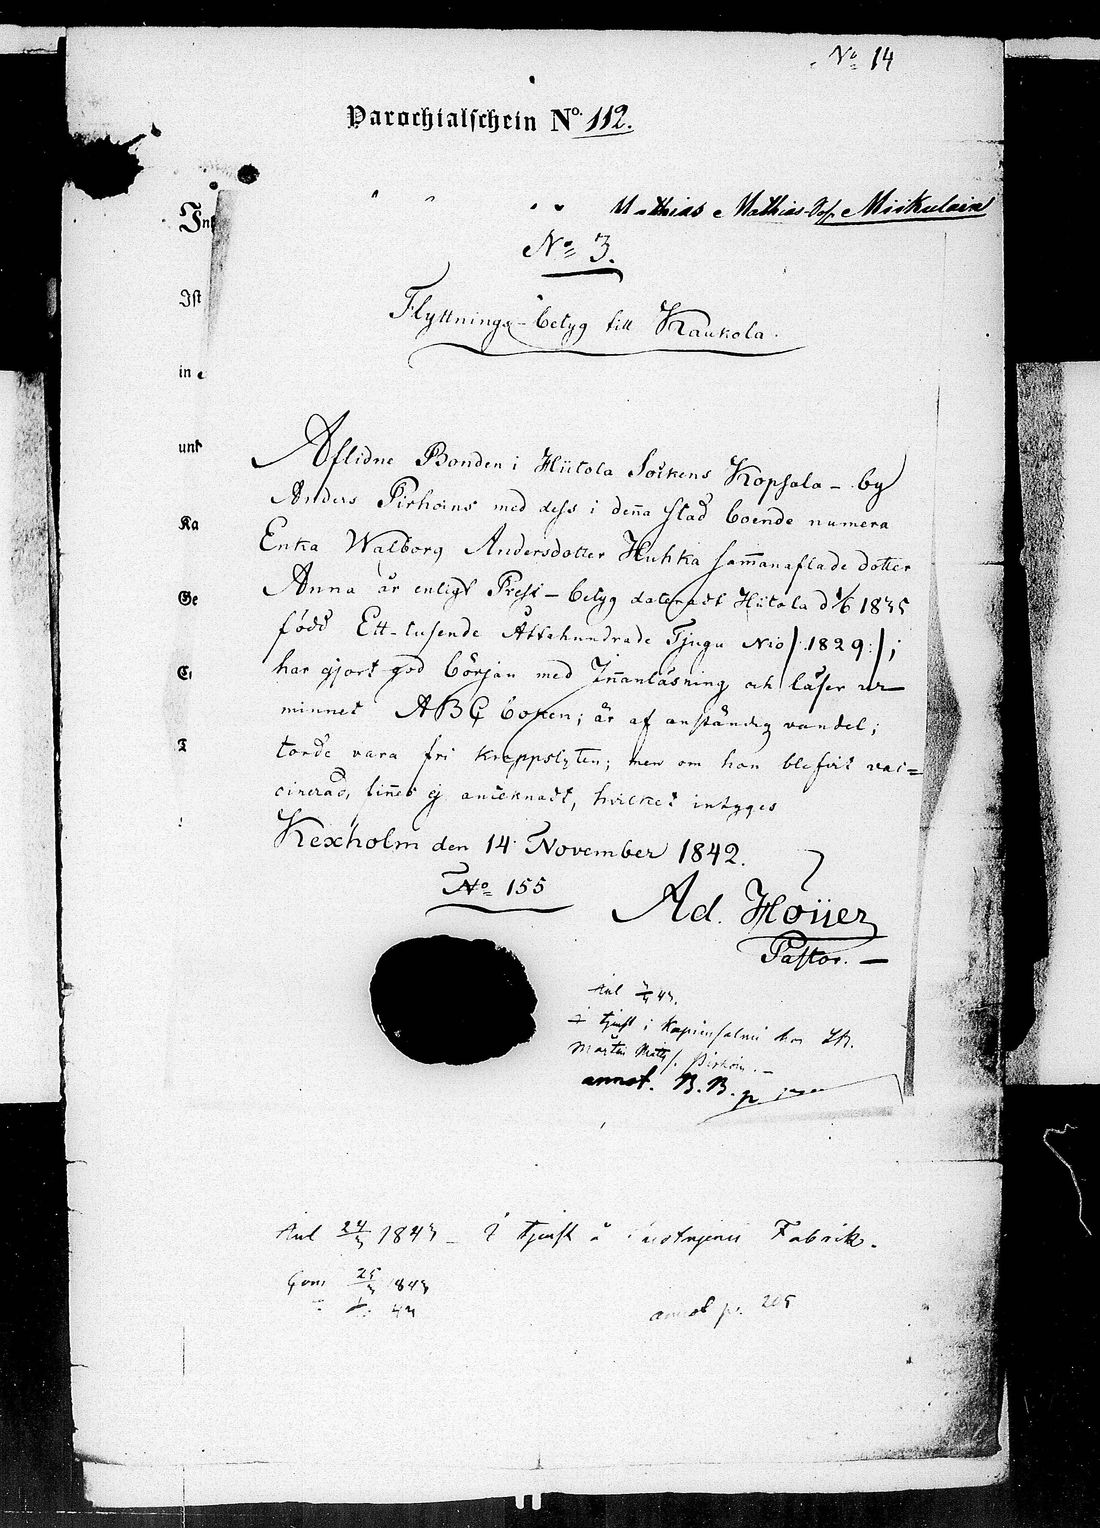 No 14
Parochialschein No. 112.
Mathias Mathias Sof. Miskulain
No 3.
Flyttnings-betyg till Kaukola.
Aflidne Bonden i Hiitola Sockens Kopsala-by
Anders Pirhoins med dess i denna stad boende numera
Enka Walborg Andersdotter Huhka sammanaflade dotter
Anna är enligt Prest-betyg dateradt Hiitola d 1/6 1835
född Ett-tusende Åttahundrade Tjugu Nio /:1829:/;
har gjort god början med Innanläsning och läser ur
minnet ABC boken; är af anständig vandel;
torde vara fri kroppslyten; men om hon blifvit vac=
cinerad, finnes ej antecknadt, hvilket intygas
Kexholm den 14 November 1842.
No 155
Ad. Höijer
Pastor.
i tjenst i Kapiansalmi hos
Mårten Matts. Pirhoin.
annot. B.B. p
Int
Ist
in
unt
Ka
Ge
T
Anl 24/3 1843 i tjenst å Fabrik.
25/3 1843
annot p. 205